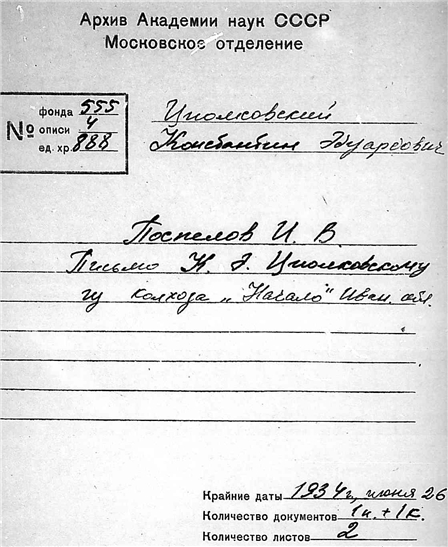 Архив Академии наук СССР
Московское отделение
№
фонда 555
описи 4
ед. хр. 888
Циолковский
Константин Эдуардович
Поспелов И. В.
Письмо К. Э. Циолковскому
колхоза „Начало" Иван. обл.
Крайние даты 1934 г., июня 26
Количество документов 1п. + 1к.
Количество листов 2